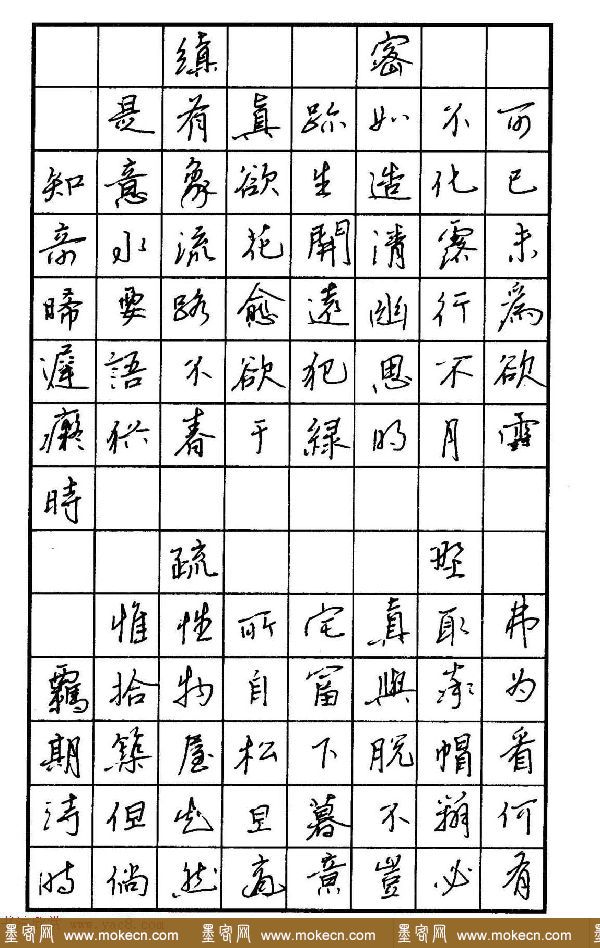 縝密
是有眞跡如不可
知意象欲生造化已
奇水流花開清露未
晞要路愈遠幽行爲
遲語不欲犯思不欲
癡猶春于綠明月雪
時
疏野
惟性所宅真取弗
羈拾物自富與率为
期築屋松下脱帽看
詩但知旦暮不辨何
時倘然適意豈必有
墨客网 www.mokecn.com 墨客网 www.mokecn.com 墨客网 www.mokecn.com